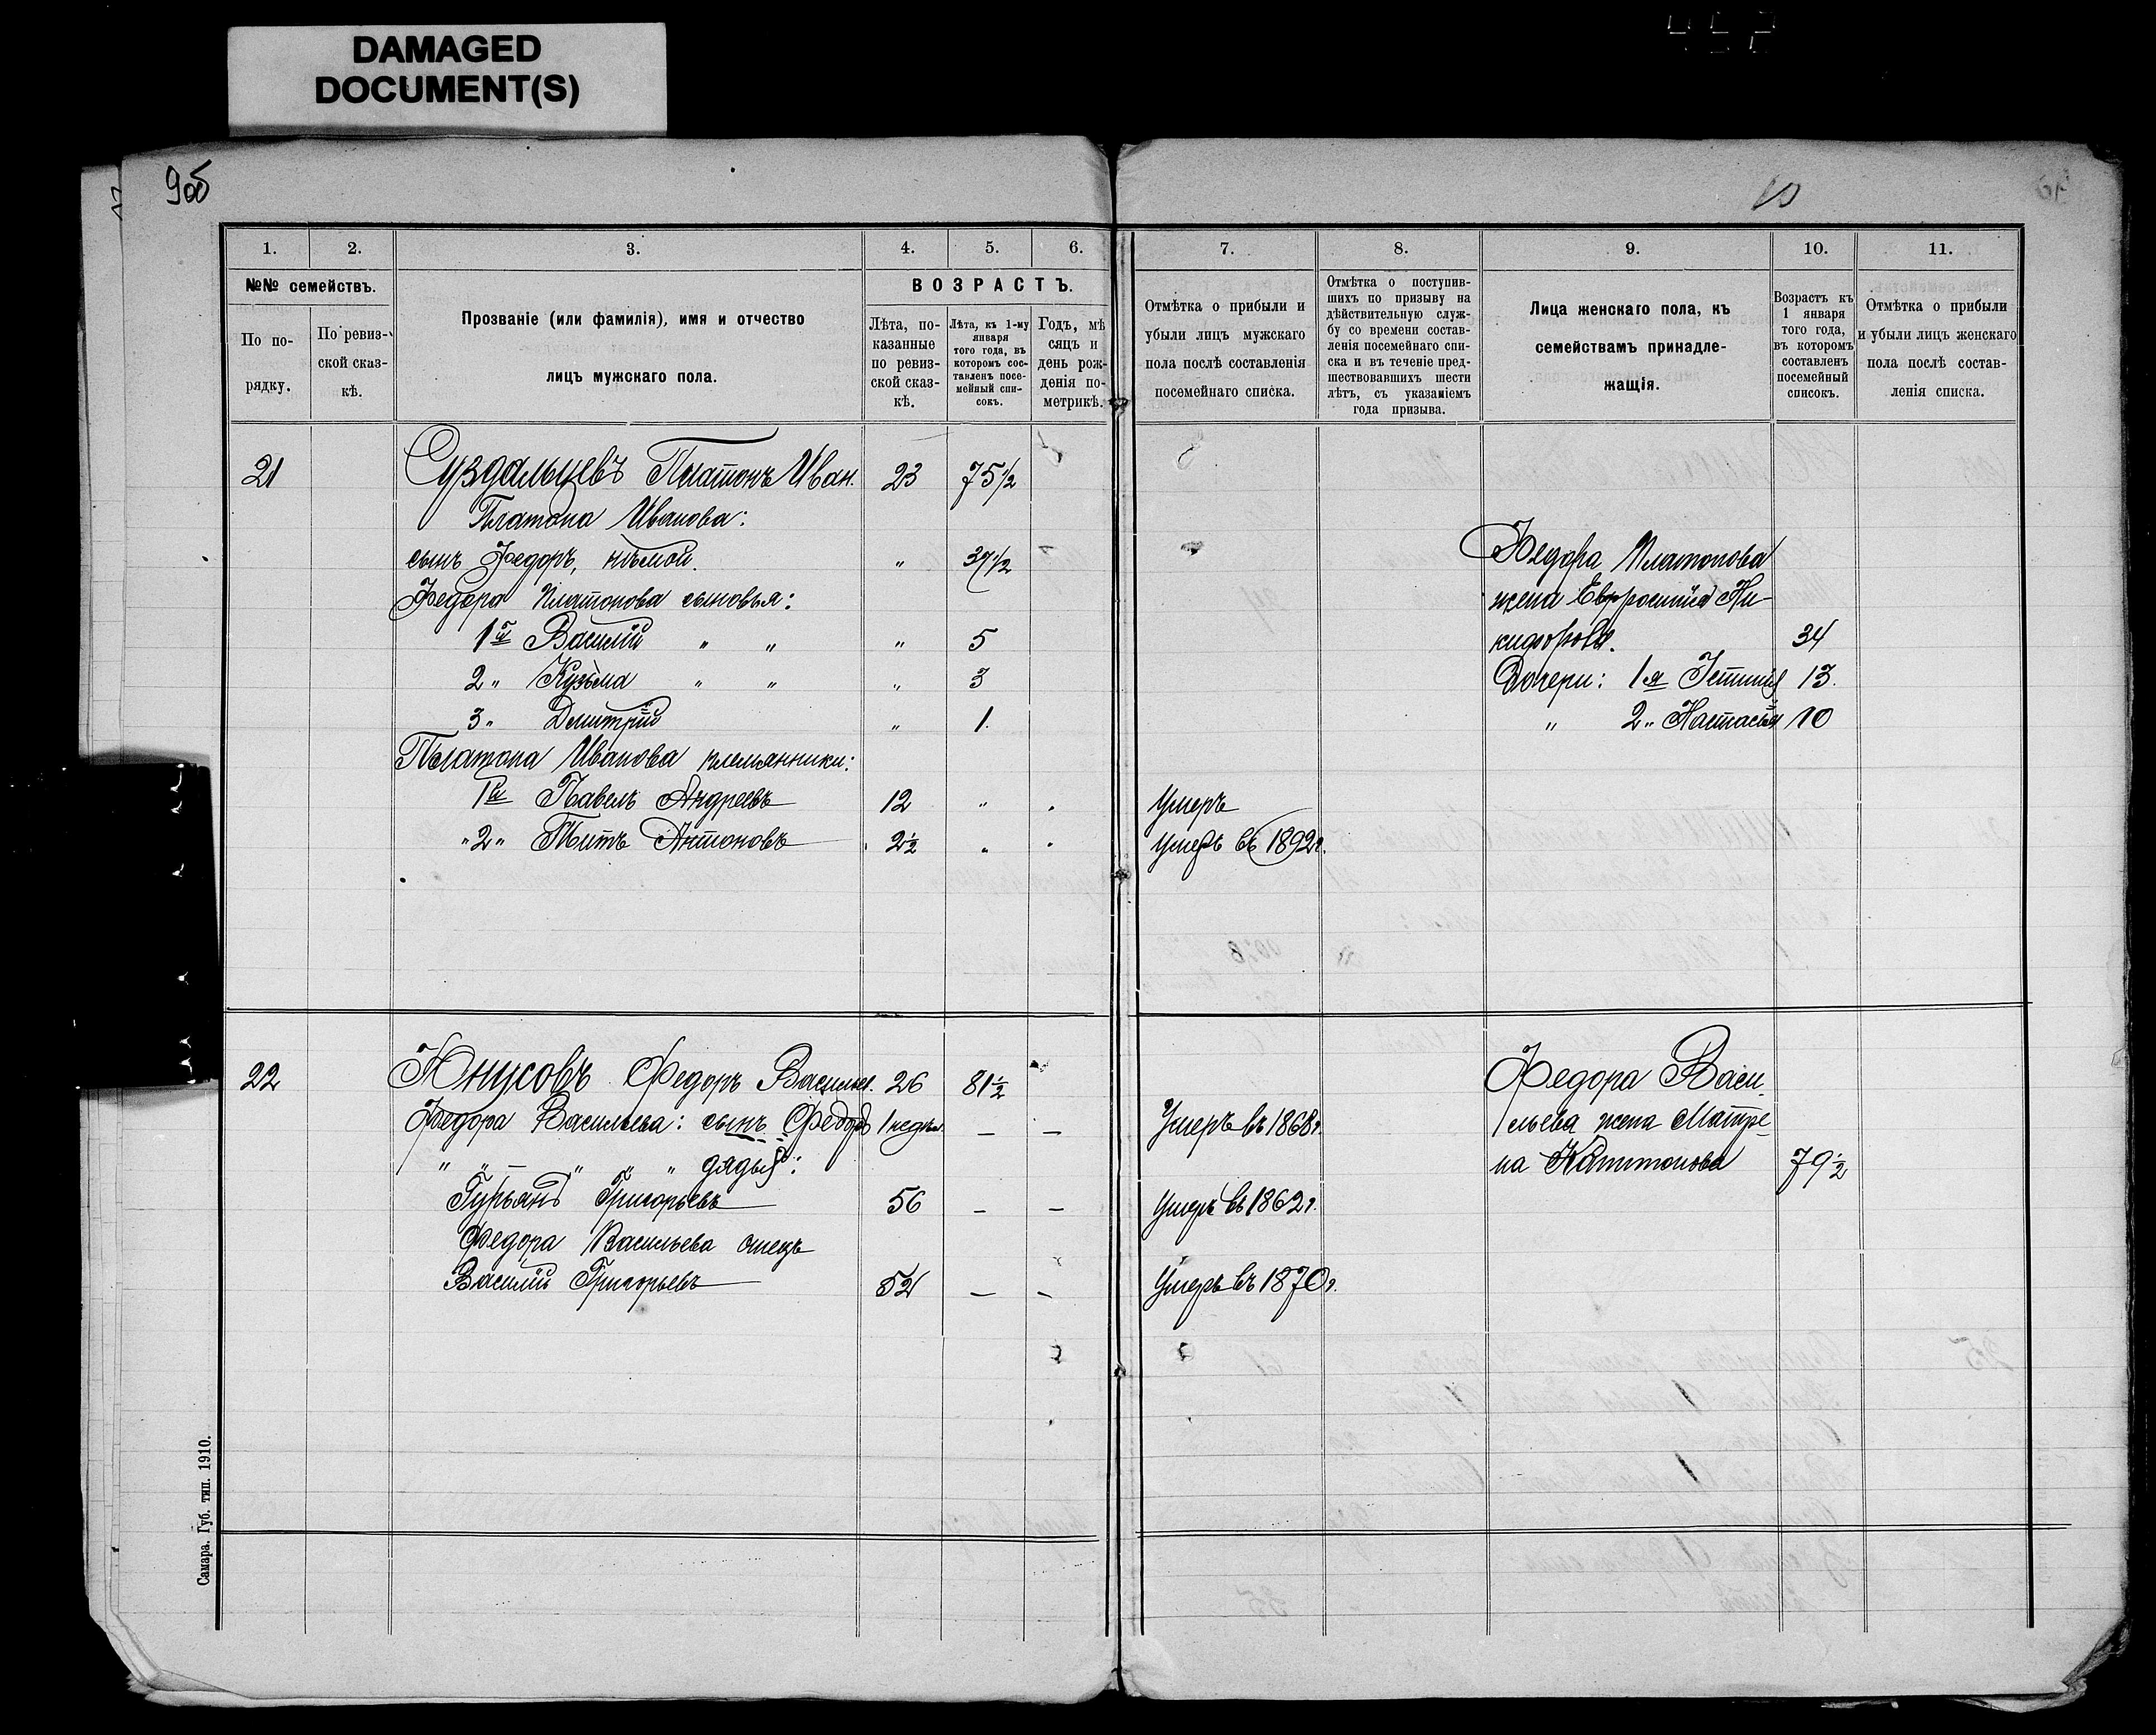 DAMAGED
DOCUMENT(S)
9об
10
1. 2. 3. 4. 5. 6. 7. 8. 9. 10. 11.
№№ семействъ.
По по-
рядку.
По ревиз-
ской сказ-
кѣ.
Прозваніе (или фамилія), имя и отчество
лицъ мужскаго пола.
ВОЗРАСТЪ.
Лѣта, по-
казанные
по ревиз-
ской сказ-
кѣ.
Лѣта, къ 1-му
января
того года, въ
которомъ сос-
тавленъ посе-
мейный спи-
сокъ.
Годъ, мѣ
сяцъ и
день рож-
денія по-
метрикѣ.
Отмѣтка о прибыли и
убыли лицъ мужскаго
пола послѣ составленія
посемейнаго списка.
Отмѣтка о поступив-
шихъ по призыву на
дѣйствительную служ-
бу со времени состав-
ленія посемейнаго спи-
ска и въ теченіе пред-
шествовавшихъ шести
лѣтъ, съ указаніемъ
года призыва.
Лица женскаго пола, къ
семействамъ принадле-
жащія.
Возрастъ къ
1 января
того года,
въ которомъ
составленъ
посемейный
списокъ.
Отмѣтка о прибыли
и убыли лицъ женскаго
пола послѣ состав-
ленія списка.
21 Суздальцевъ Платонъ Иван. 23 75½
Платона Иванова:
сынъ Федоръ, нѣмой. " 37½
Федора Платонова сыновья:
1й Василій " " " 5
2 " Кузьма " " " 3
3 " Дмитрій " 1.
Платона Иванова племянники:
1й Павелъ Андреевъ 12 " Умеръ
" 2 " Титъ Антоновъ 2½ " Умеръ въ 1892г.
Федора Платонова
жена Евфросинія Ни-
кифорова. 34
Дочери: 1я Устинія 13.
" 2 " Настасья 10
22 Юнусовъ Федоръ Васильев. 26 81½
Федора Васильева: сынъ Федоръ 1 недѣл. — — Умеръ въ 1868г.
" " — " " " дядья:
Гурьянъ Григорьевъ 56 — — Умеръ въ 1862г.
Федора Васильева отецъ
Василій Григорьевъ 52 — — Умеръ въ 1870г.
Федора Васи
льева жена Матре-
на Капитонова 79½
Самара. Губ. тип. 1910.